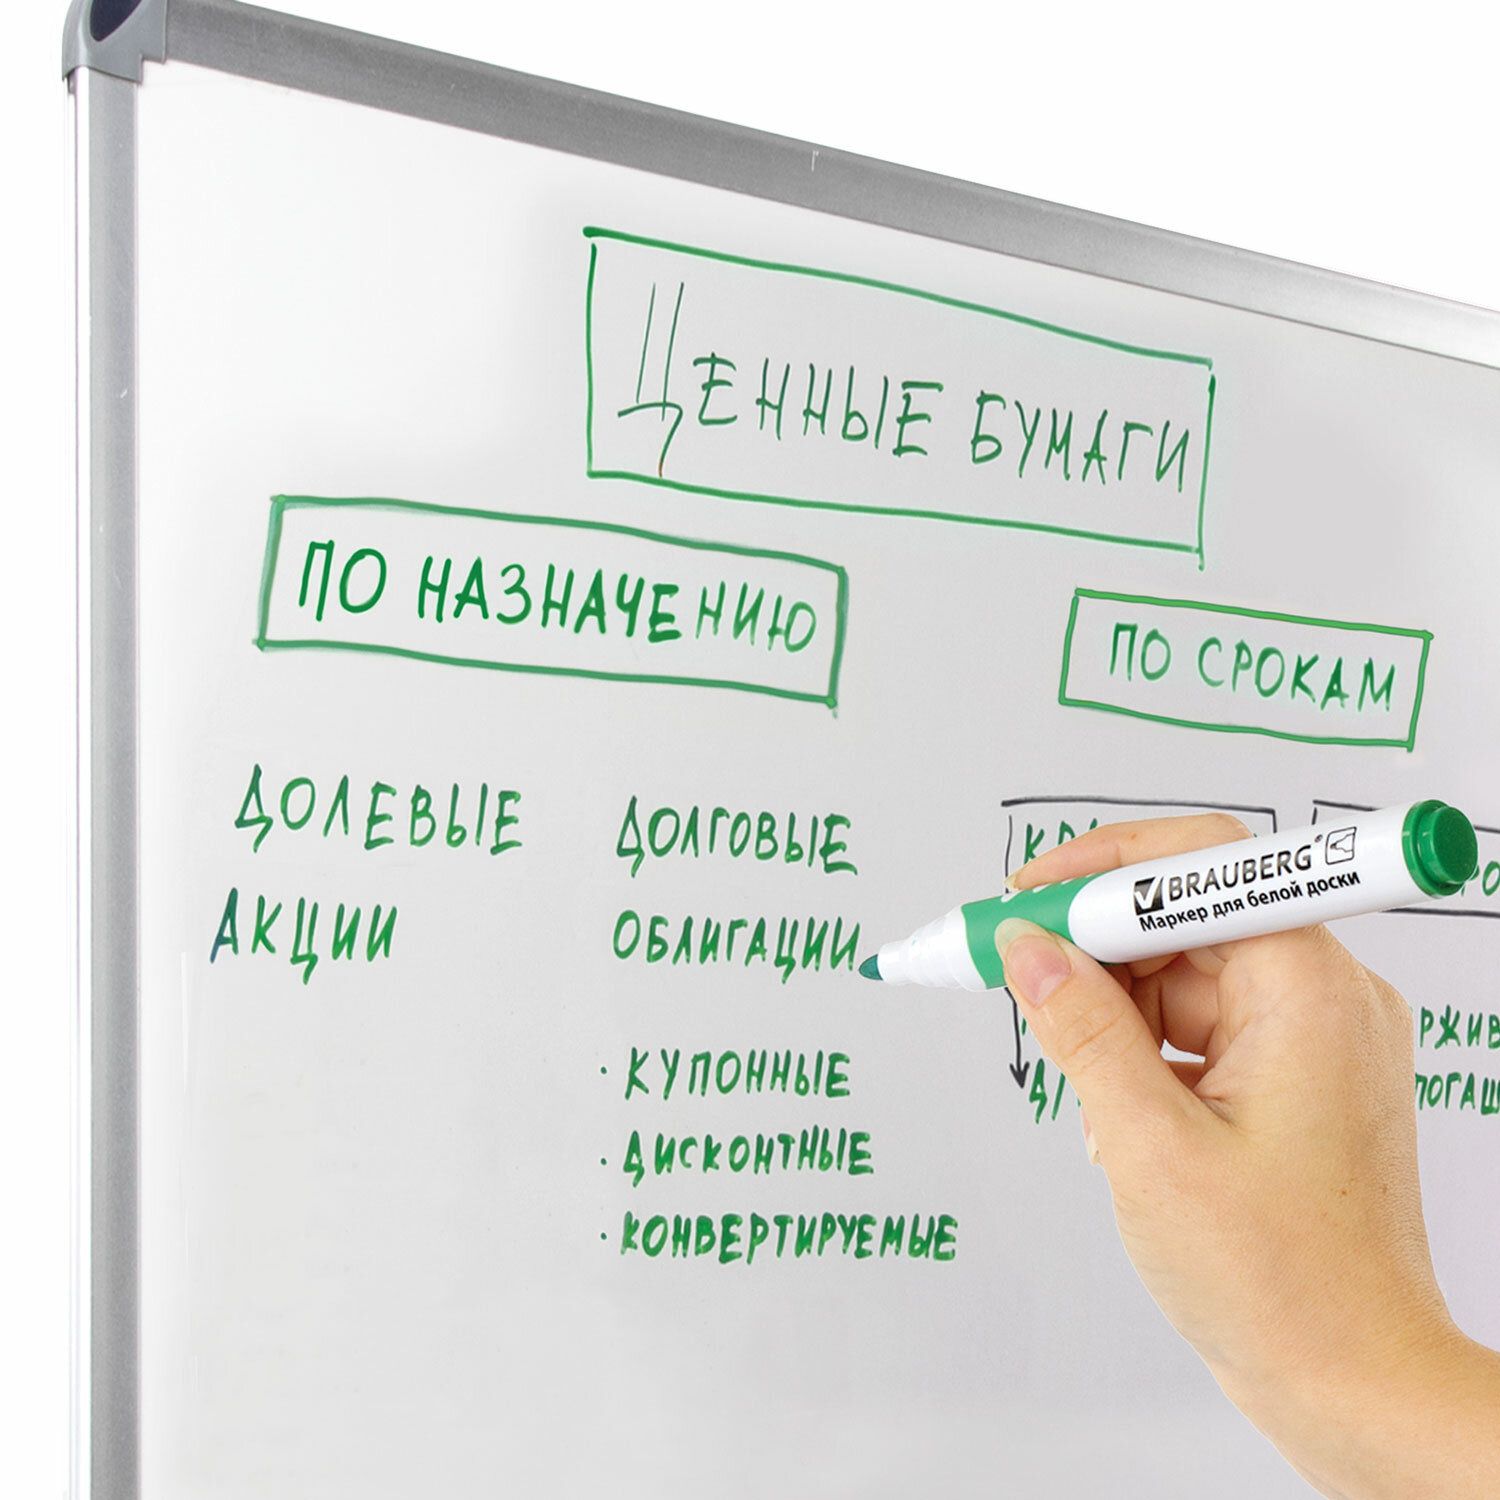 ЦЕННЫЕ БУМАГИ
ПО НАЗНАЧЕНИЮ
ПО СРОКАМ
ДОЛЕВЫЕ
АКЦИИ
ДОЛГОВЫЕ
ОБЛИГАЦИИ
· КУПОННЫЕ
· ДИСКОНТНЫЕ
· КОНВЕРТИРУЕМЫЕ
BRAUBERG®
Маркер для белой доски